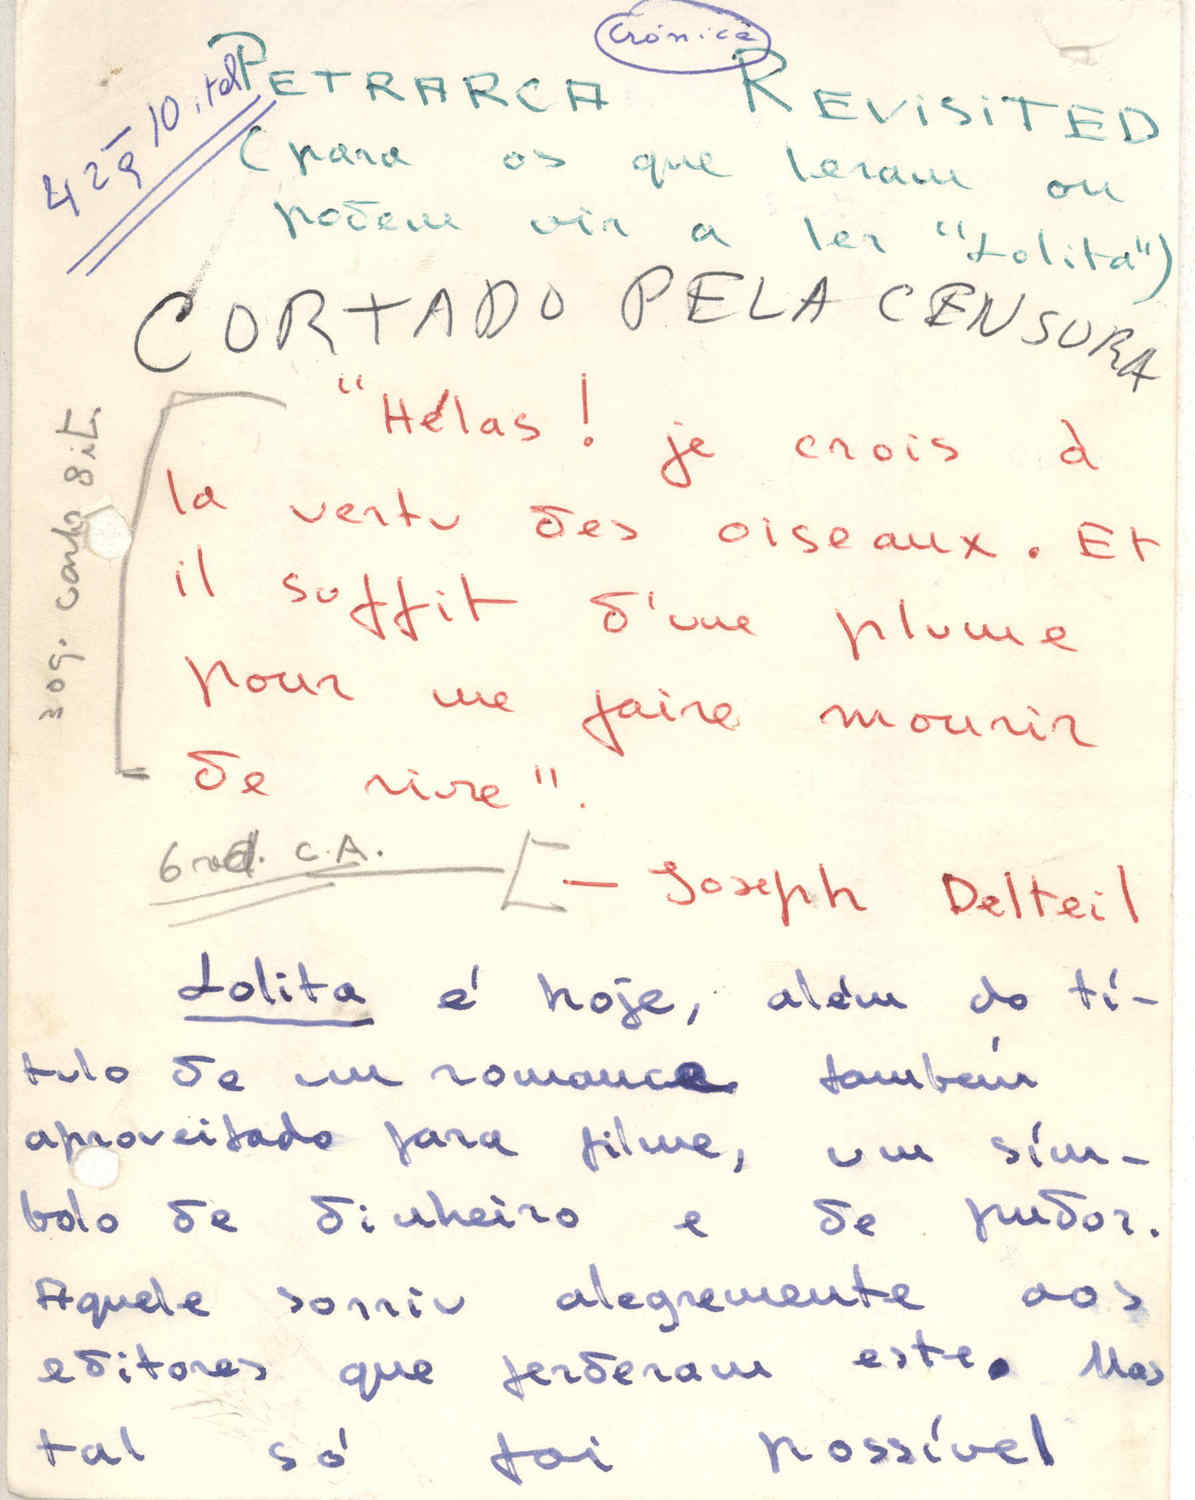 Crónica
PETRARCA REVISITED
(para os que leram ou
podem vir a ler "Lolita")
CORTADO PELA CENSURA
"Hélas! je crois à
la vertu des oiseaux. Et
il suffit d'une plume
pour me faire mourir
de rire".
C.A.
— Joseph Delteil
Lolita é hoje, além do tí-
tulo de um romance também
aproveitado para filme, um sím-
bolo de dinheiro e de pudor.
Aquele sorriu alegremente aos
editores que perderam este. Mas
tal só foi possível